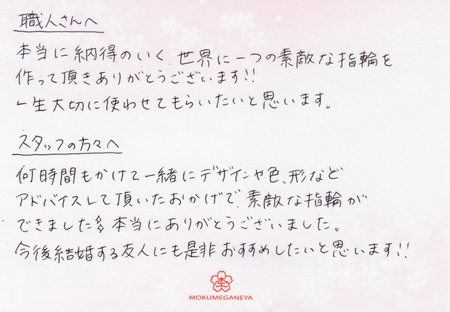 職人さんへ
本当に納得のいく、世界に一つの素敵な指輪を
作って頂きありがとうございます!!
一生大切に使わせてもらいたいと思います。
スタッフの方々へ
何時間もかけて一緒にデザインや色、形など
アドバイスして頂いたおかげで素敵な指輪が
できました 本当にありがとうございました。
今後結婚する友人にも是非おすすめしたいと思います!!
MOKUMEGANEYA